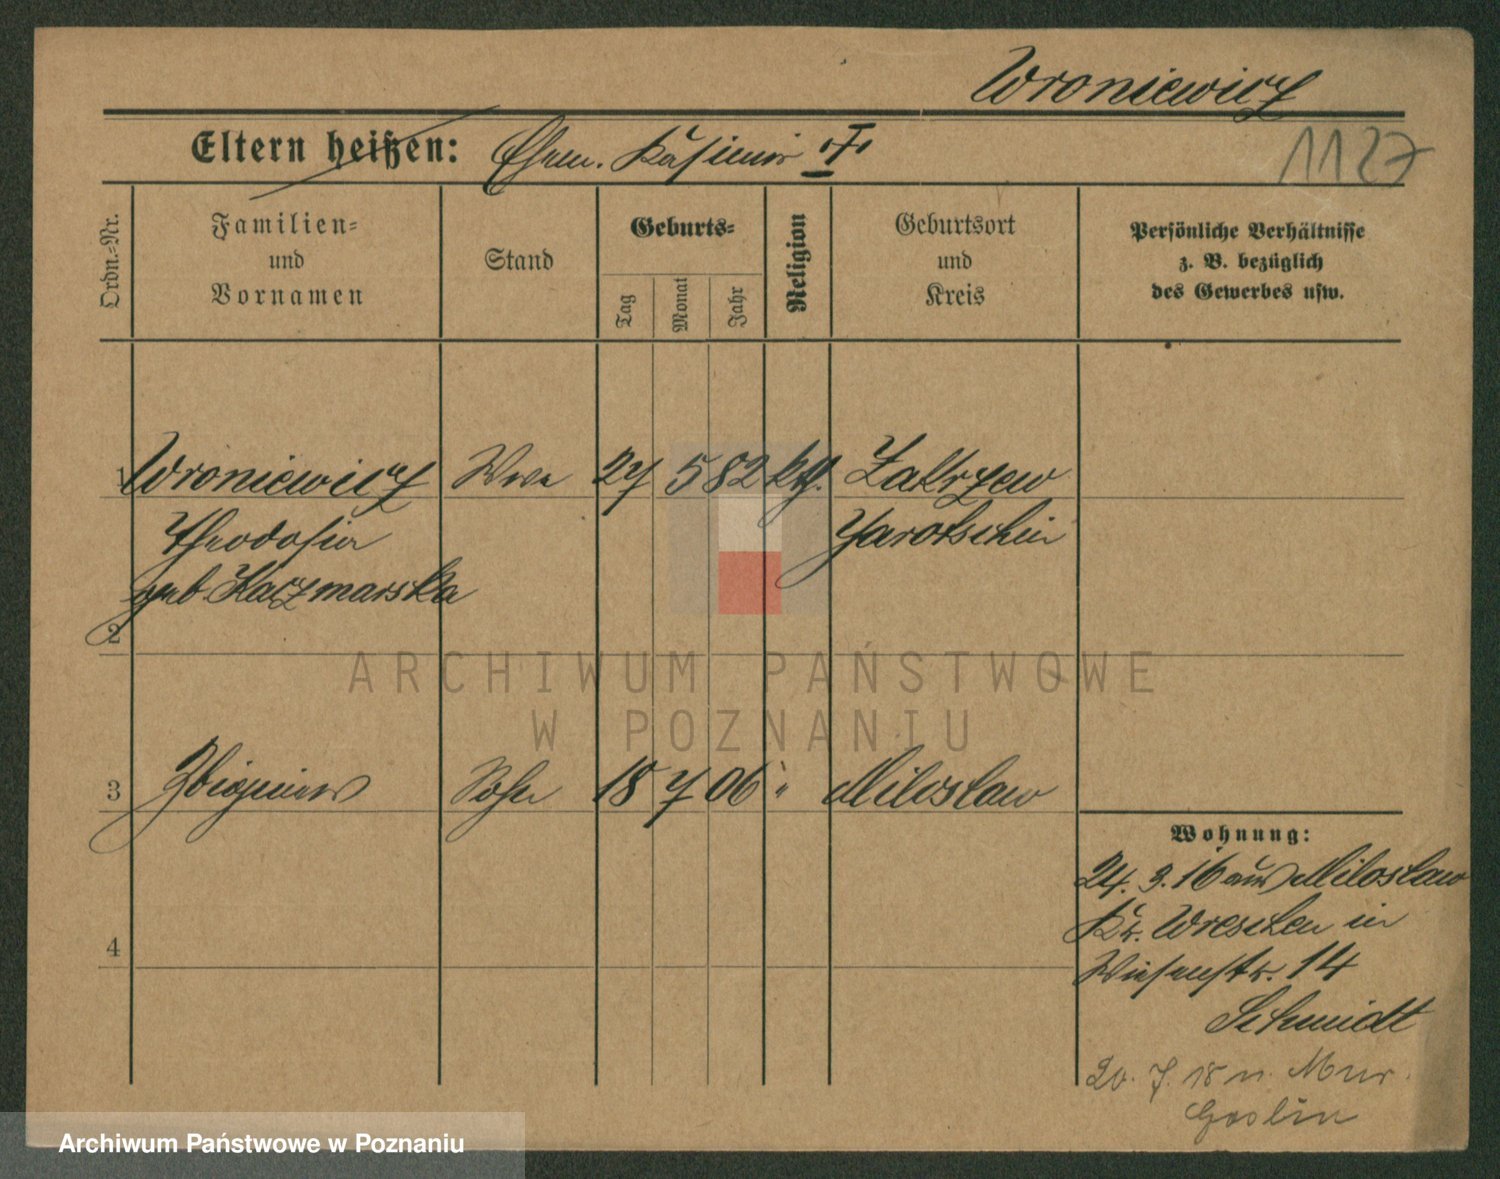 Wroniewicz
1127
Eltern heißen: Ehem. Kasimir †
Ordn.-Nr.
Familien-
und
Vornamen
Stand
Geburts-
Tag
Monat
Jahr
Religion
Geburtsort
und
Kreis
Persönliche Verhältnisse
z. B. bezüglich
des Gewerbes usw.
1 Wroniewicz Wwe 27 5 82 kth. Zakrzew
Theodosia Jarotschin
geb. Kaczmarska
2
3 Zbigniew Sohn 18 7 06 " Miloslaw
4
Wohnung:
24. 3. 16 aus Miloslaw
Kr. Wreschen in
Wiesenstr. 14
Schmidt
20. 7. 18 n. Mur.
Goslin
ARCHIWUM PAŃSTWOWE
W POZNANIU
Archiwum Państwowe w Poznaniu